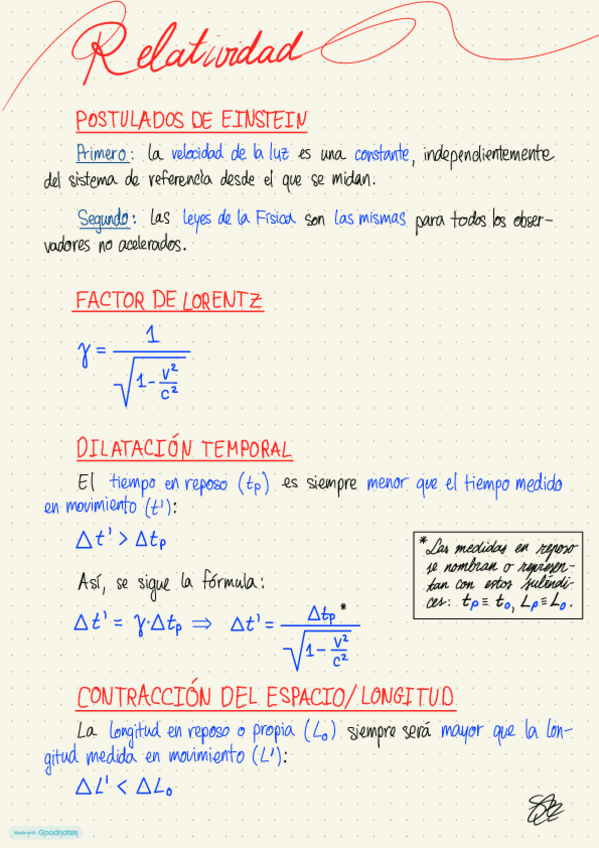 Relatividad
POSTULADOS DE EINSTEIN
Primero: la velocidad de la luz es una constante, independientemente
del sistema de referencia desde el que se midan.
Segundo: las leyes de la Física son las mismas para todos los obser-
vadores no acelerados.
FACTOR DE LORENTZ
γ = 1 / √(1 - v²/c²)
DILATACIÓN TEMPORAL
El tiempo en reposo (tp) es siempre menor que el tiempo medido
en movimiento (t'):
Δt' > Δtp
* Las medidas en reposo
se nombran o represen-
tan con estos subíndi-
ces: tp ≡ t₀, Lp ≡ L₀.
Así, se sigue la fórmula:
Δt' = γ·Δtp ⇒ Δt' = Δtp* / √(1 - v²/c²)
CONTRACCIÓN DEL ESPACIO/LONGITUD
La longitud en reposo o propia (L₀) siempre será mayor que la lon-
gitud medida en movimiento (L'):
ΔL' < ΔL₀
Made with Goodnotes